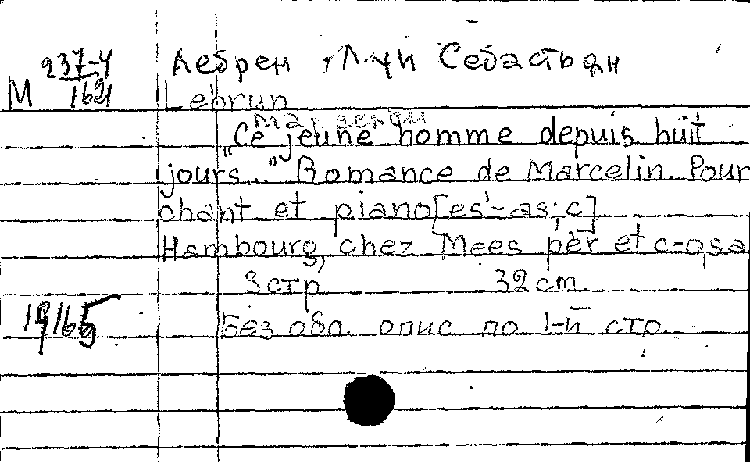 М 237-4/164 Лебрен, Луи Себастьян
Lebrun
"Ce jeune homme depuis huit
jours..." Romance de Marcelin. Pour
chant et piano [es¹-as; c]
Hambourg, chez Mees pèr et c-o
3 стр 32 cm
19165 Без обл. опис по 1-й стр.